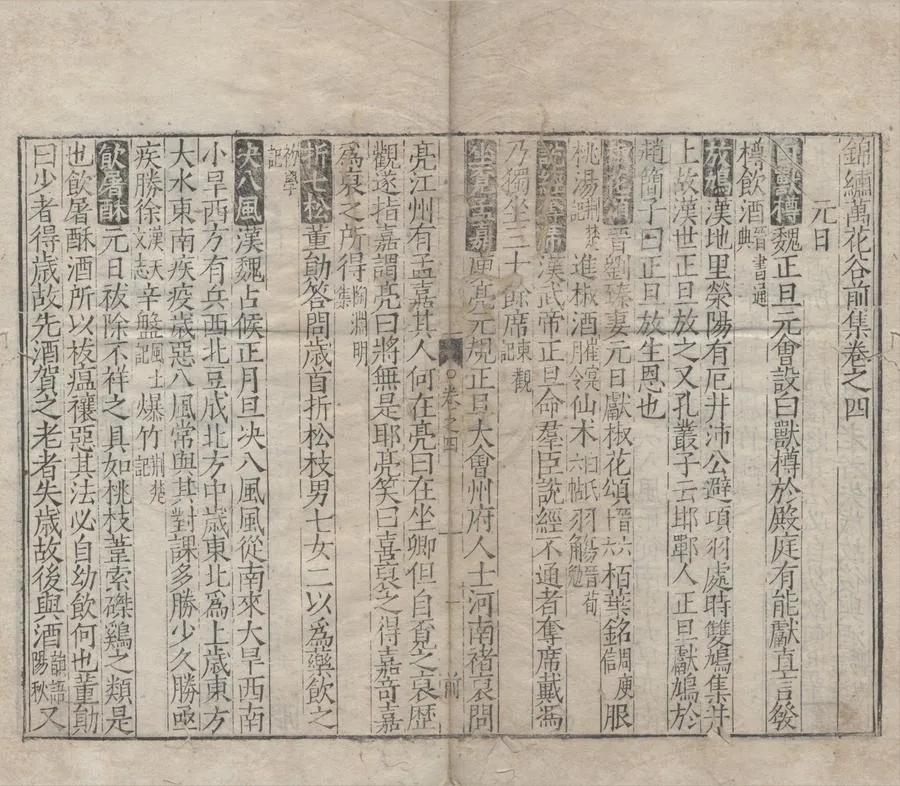 錦繡萬花谷前集卷之四
元日
白獸樽魏正旦元會設白獸樽於殿庭有能獻直言發
樽飲酒晉書通典
放鳩漢地里滎陽有厄井沛公避項羽處時雙鳩集井
上故漢世正旦放之又孔叢子云邯鄲人正旦獻鳩於
趙簡子曰正旦放生恩也
椒花頌晉劉臻妻元日獻椒花頌晉六六栢葉銘庾服
桃湯荆楚記進椒酒崔寔月令仙木六帖羽觴晉荀勉
說經奪席漢武帝正旦命羣臣說經不通者奪席戴馮
乃獨坐五十餘席東觀記
坐覓孟嘉庾亮元規正旦大會州府人士河南褚裒問
亮江州有孟嘉其人何在亮曰在坐卿但自覓之裒歷
觀遂指嘉謂亮曰將無是耶亮笑曰喜裒之得嘉奇嘉
爲裒之所得陶淵明集
折七松董勛答問歲首折松枝男七女二以爲藥飲之
初學記
决八風漢魏占候正月旦决八風風從南來大旱西南
小旱西方有兵西北豆成北方中歲東北爲上歲東方
大水東南疾疫歲惡八風常與其對課多勝少久勝亟
疾勝徐漢天文志辛盤風土記爆竹荆楚記
飲屠酥元日祓除不祥之具如桃枝葦索磔鷄之類是
也飲屠酥酒所以祓瘟禳惡其法必自幼飲何也董勛
曰少者得歲故先酒賀之老者失歲故後與酒韻語陽秋又
卷之四
一
前